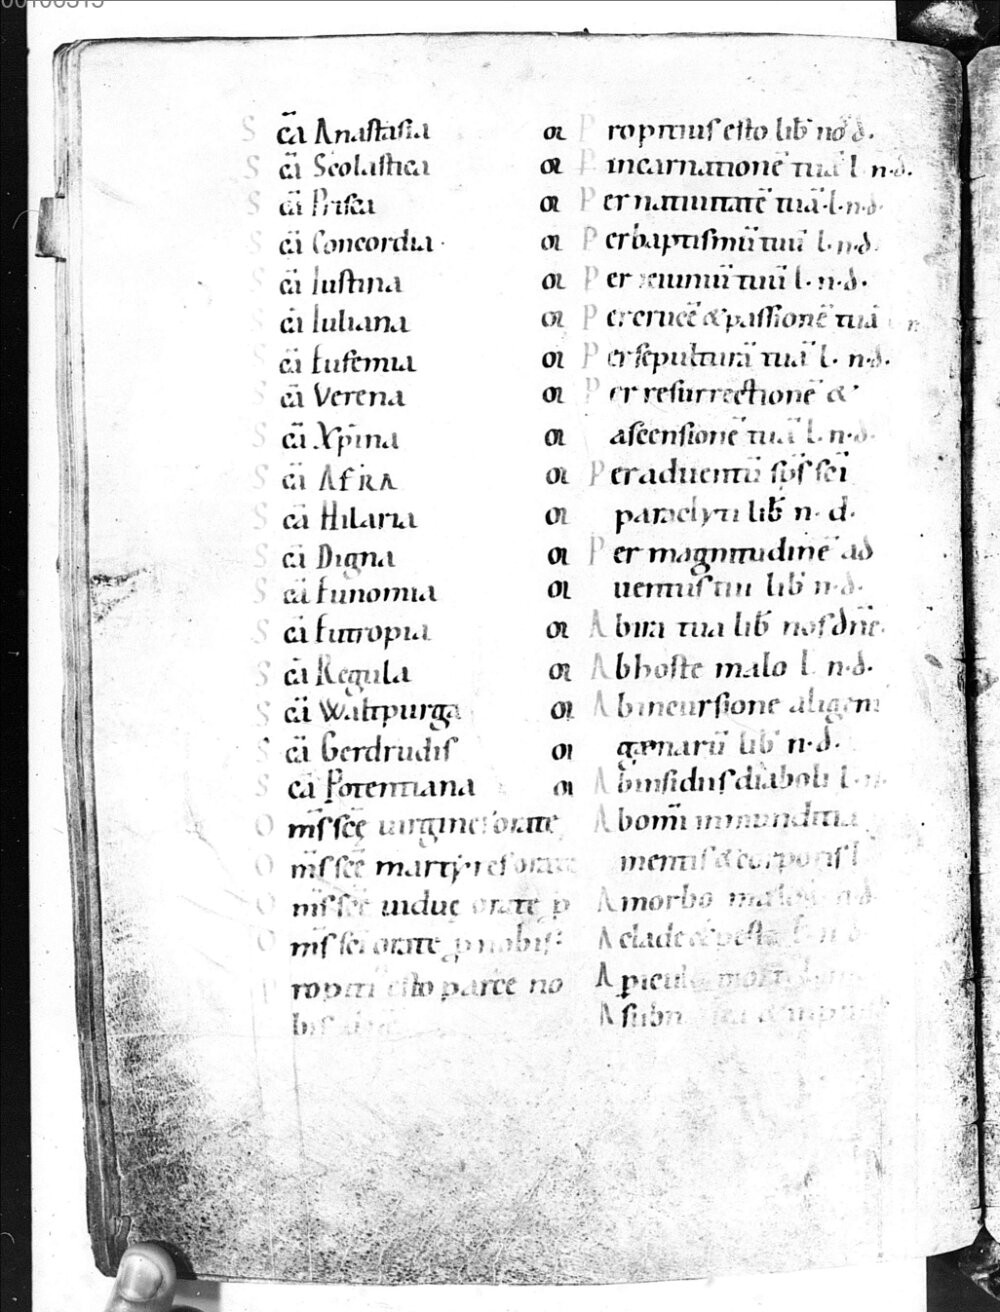 S c̄a Anastasia oꝛ
S c̄a Scolastica oꝛ
S c̄a Prisca oꝛ
S c̄a Concordia · oꝛ
S c̄a Iustina oꝛ
S c̄a Iuliana oꝛ
S c̄a Eufemia oꝛ
S c̄a Verena oꝛ
S c̄a Xp̄ina oꝛ
S c̄a AFRA oꝛ
S c̄a Hilaria oꝛ
S c̄a Digna oꝛ
S c̄a Eunomia oꝛ
S c̄a Eutropia oꝛ
S c̄a Regula oꝛ
S c̄a Waltpurga oꝛ
S c̄a Gerdrudis oꝛ
S c̄a Potentiana oꝛ
O m̄s sc̄ę uirgines orate
O m̄s sc̄ę martyres orate
O m̄s sc̄ę uiduę orate p
O m̄s sc̄i orate p nobis
P ropiti' esto parce no
bis
P ropitius esto lib̄ nos d̄.
P incarnationē tuā l n·d.
P er natiuitatē tuā·l·n·d·
P er baptismū tuū l·n·d.
P er ieiuniū tuū l·n·d·
P er crucē & passionē tuā l n
P er sepulturā tuā l· n·d.
P er resurrectionē &
ascensionē tuā l·n·d·
P er aduentū sp̄s sc̄i
paraclyti lib̄ n· d.
P er magnitudinē ad
uentus tui lib̄ n·d.
A b ira tua lib̄ nos dn̄e.
A b hoste malo l n·d.
A b incursione aligeni
gænarū lib̄ n·d.
A b insidiis diaboli l·n·
A b om̄i inmunditia
mentis & corporis l
A morbo malo n d
A clade & peste l n d
A piculo mortis
A subit